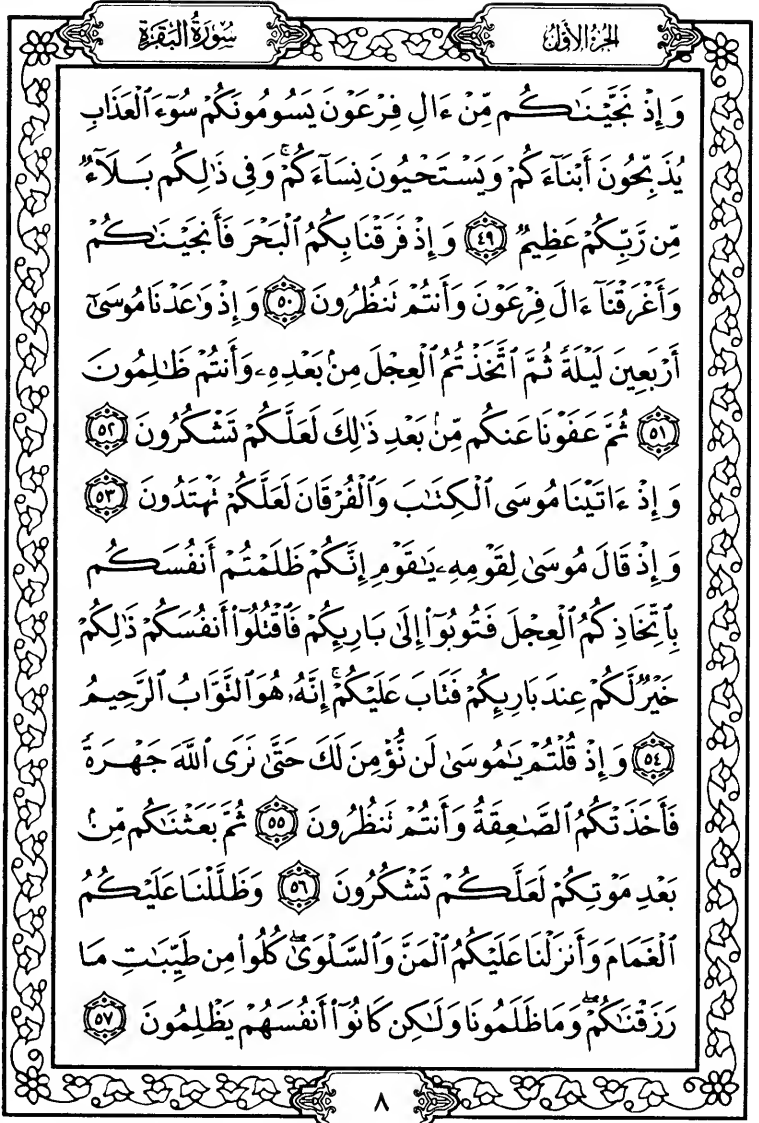 سُورَةُ البَقَرَةِ
الجُزءُ الأَوَّلُ
وَإِذْ نَجَّيْنَٰكُم مِّنْ ءَالِ فِرْعَوْنَ يَسُومُونَكُمْ سُوٓءَ ٱلْعَذَابِ
يُذَبِّحُونَ أَبْنَآءَكُمْ وَيَسْتَحْيُونَ نِسَآءَكُمْ ۚ وَفِى ذَٰلِكُم بَلَآءٌ
مِّن رَّبِّكُمْ عَظِيمٌ ٤٩ وَإِذْ فَرَقْنَا بِكُمُ ٱلْبَحْرَ فَأَنجَيْنَٰكُمْ
وَأَغْرَقْنَآ ءَالَ فِرْعَوْنَ وَأَنتُمْ تَنظُرُونَ ٥٠ وَإِذْ وَٰعَدْنَا مُوسَىٰٓ
أَرْبَعِينَ لَيْلَةً ثُمَّ ٱتَّخَذْتُمُ ٱلْعِجْلَ مِنۢ بَعْدِهِۦ وَأَنتُمْ ظَٰلِمُونَ
٥١ ثُمَّ عَفَوْنَا عَنكُم مِّنۢ بَعْدِ ذَٰلِكَ لَعَلَّكُمْ تَشْكُرُونَ ٥٢
وَإِذْ ءَاتَيْنَا مُوسَى ٱلْكِتَٰبَ وَٱلْفُرْقَانَ لَعَلَّكُمْ تَهْتَدُونَ ٥٣
وَإِذْ قَالَ مُوسَىٰ لِقَوْمِهِۦ يَٰقَوْمِ إِنَّكُمْ ظَلَمْتُمْ أَنفُسَكُم
بِٱتِّخَاذِكُمُ ٱلْعِجْلَ فَتُوبُوٓا۟ إِلَىٰ بَارِئِكُمْ فَٱقْتُلُوٓا۟ أَنفُسَكُمْ ذَٰلِكُمْ
خَيْرٌ لَّكُمْ عِندَ بَارِئِكُمْ فَتَابَ عَلَيْكُمْ ۚ إِنَّهُۥ هُوَ ٱلتَّوَّابُ ٱلرَّحِيمُ
٥٤ وَإِذْ قُلْتُمْ يَٰمُوسَىٰ لَن نُّؤْمِنَ لَكَ حَتَّىٰ نَرَى ٱللَّهَ جَهْرَةً
فَأَخَذَتْكُمُ ٱلصَّٰعِقَةُ وَأَنتُمْ تَنظُرُونَ ٥٥ ثُمَّ بَعَثْنَٰكُم مِّنۢ
بَعْدِ مَوْتِكُمْ لَعَلَّكُمْ تَشْكُرُونَ ٥٦ وَظَلَّلْنَا عَلَيْكُمُ
ٱلْغَمَامَ وَأَنزَلْنَا عَلَيْكُمُ ٱلْمَنَّ وَٱلسَّلْوَىٰ ۖ كُلُوا۟ مِن طَيِّبَٰتِ مَا
رَزَقْنَٰكُمْ ۖ وَمَا ظَلَمُونَا وَلَٰكِن كَانُوٓا۟ أَنفُسَهُمْ يَظْلِمُونَ ٥٧
٨